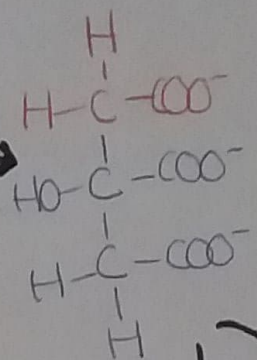 H
H-C-COO⁻
HO-C-COO⁻
H-C-COO⁻
H